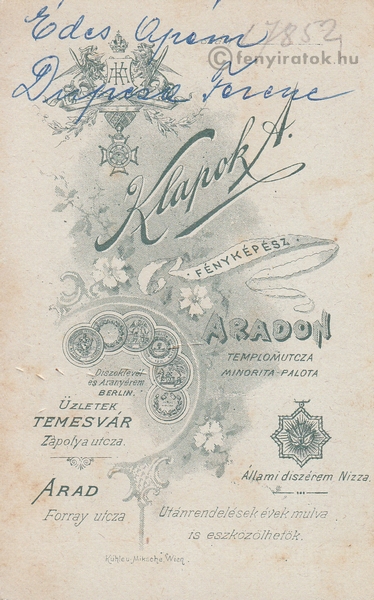 Édes Apám 17852
© fenyiratok.hu
Ferenc
Klapok A.
FÉNYKÉPÉSZ
ARADON
TEMPLOMUTCZA
MINORITA-PALOTA
Díszoklevél
és Aranyérem
BERLIN.
ÜZLETEK
TEMESVÁR
Zápolya utcza.
Állami diszérem Nizza.
ARAD
Forray utcza
Utánrendelések évek múlva
is eszközölhetők.
Wien